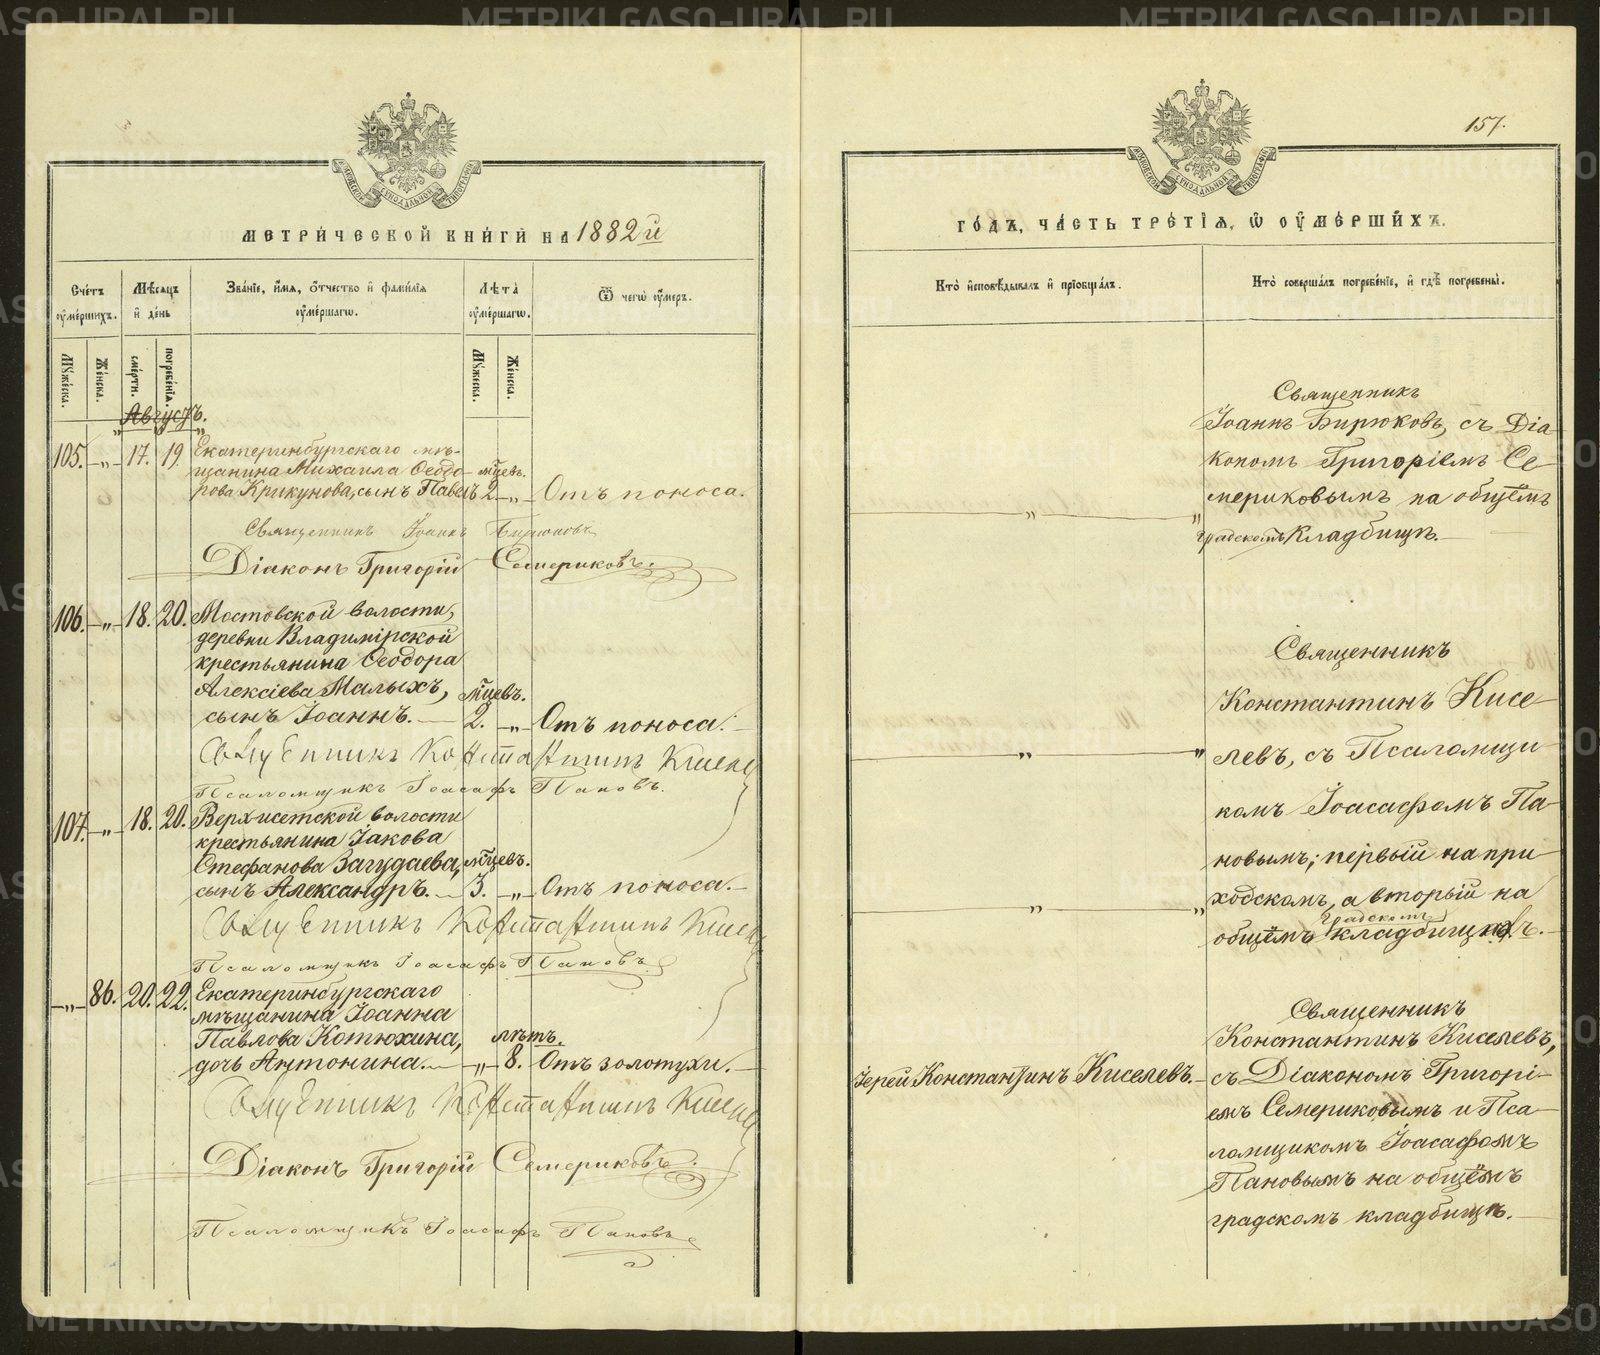 METRIKI.GASO-URAL.RU
157.
МОСКОВСКОЙ СѴНОДАЛЬНОЙ ТИПОГРАФІИ
МЕТРИ́ЧЕСКОЙ КНИ́ГИ НА 1882й
Сче́тъ ᲂу҆ме́ршихъ.
Мѣ́сяцъ и҆ де́нь
Зва́нїе, и҆́мѧ, ѻ҆́тчество и҆ фами́лїѧ ᲂу҆ме́ршагѡ.
Лѣ́та ᲂу҆ме́ршагѡ.
Ѿ чегѡ̀ ᲂу҆́меръ.
Мꙋ́жеска.
Же́нска.
сме́рти.
погребе́нїѧ.
Мꙋ́жеска.
Же́нска.
Августъ.
105. „ 17. 19. Екатеринбургскаго мѣ-
щанина Михаила Ѳеодо- мцевъ.
рова Крикунова, сынъ Павелъ 2 „ Отъ поноса.
Священникъ Іоаннъ Бирюковъ
Діаконъ Григорій Семериковъ.
106. „ 18. 20. Мостовской волости,
деревни Владимірской
крестьянина Ѳеодора
Алексіева Малыхъ, мцевъ.
сынъ Іоаннъ. 2. „ Отъ поноса.
Священникъ Константинъ Киселев
Псаломщикъ Іоасафъ Пановъ.
107. „ 18. 20. Верхисетской волости
крестьянина Іакова
Стефанова Загудаева, мцевъ.
сынъ Александръ. 3. „ Отъ поноса.
Священникъ Константинъ Киселев
Псаломщикъ Іоасафъ Пановъ
„ 86. 20. 22. Екатеринбургскаго
мѣщанина Іоанна
Павлова Котюхина, лѣтъ.
дочь Антонина. „ 8. Отъ золотухи.
Священникъ Константинъ Киселев
Діаконъ Григорій Семериковъ.
Псаломщикъ Іоасафъ Пановъ
МОСКОВСКОЙ СѴНОДАЛЬНОЙ ТИПОГРАФІИ
ГО́ДЪ, ЧА́СТЬ ТРЕ́ТЇѦ, Ѡ҆ ОУ҆МЕ́РШИХЪ.
Кто̀ и҆сповѣ́дывалъ и҆ прїѻбща́лъ.
Кто̀ соверша́лъ погребе́нїе, и҆ гдѣ̀ погребены̀.
Священникъ
Іоаннъ Бирюковъ, съ Діа-
кономъ Григоріемъ Се-
мериковымъ на общемъ
„ „ градскомъ кладбищѣ.
Священникъ
Константинъ Кисе-
„ „ левъ, съ Псаломщи-
комъ Іоасафомъ Па-
новымъ; первый на при-
ходскомъ, а вторый на
„ „ градскомъ
общемъ кладбищахъ.
Священникъ
Константинъ Киселевъ,
Іерей Константинъ Киселевъ. съ Діакономъ Григорі-
емъ Семериковымъ и Пса-
ломщикомъ Іоасафомъ
Пановымъ на общемъ
градскомъ кладбищѣ.
METRIKI.GASO-URAL.RU